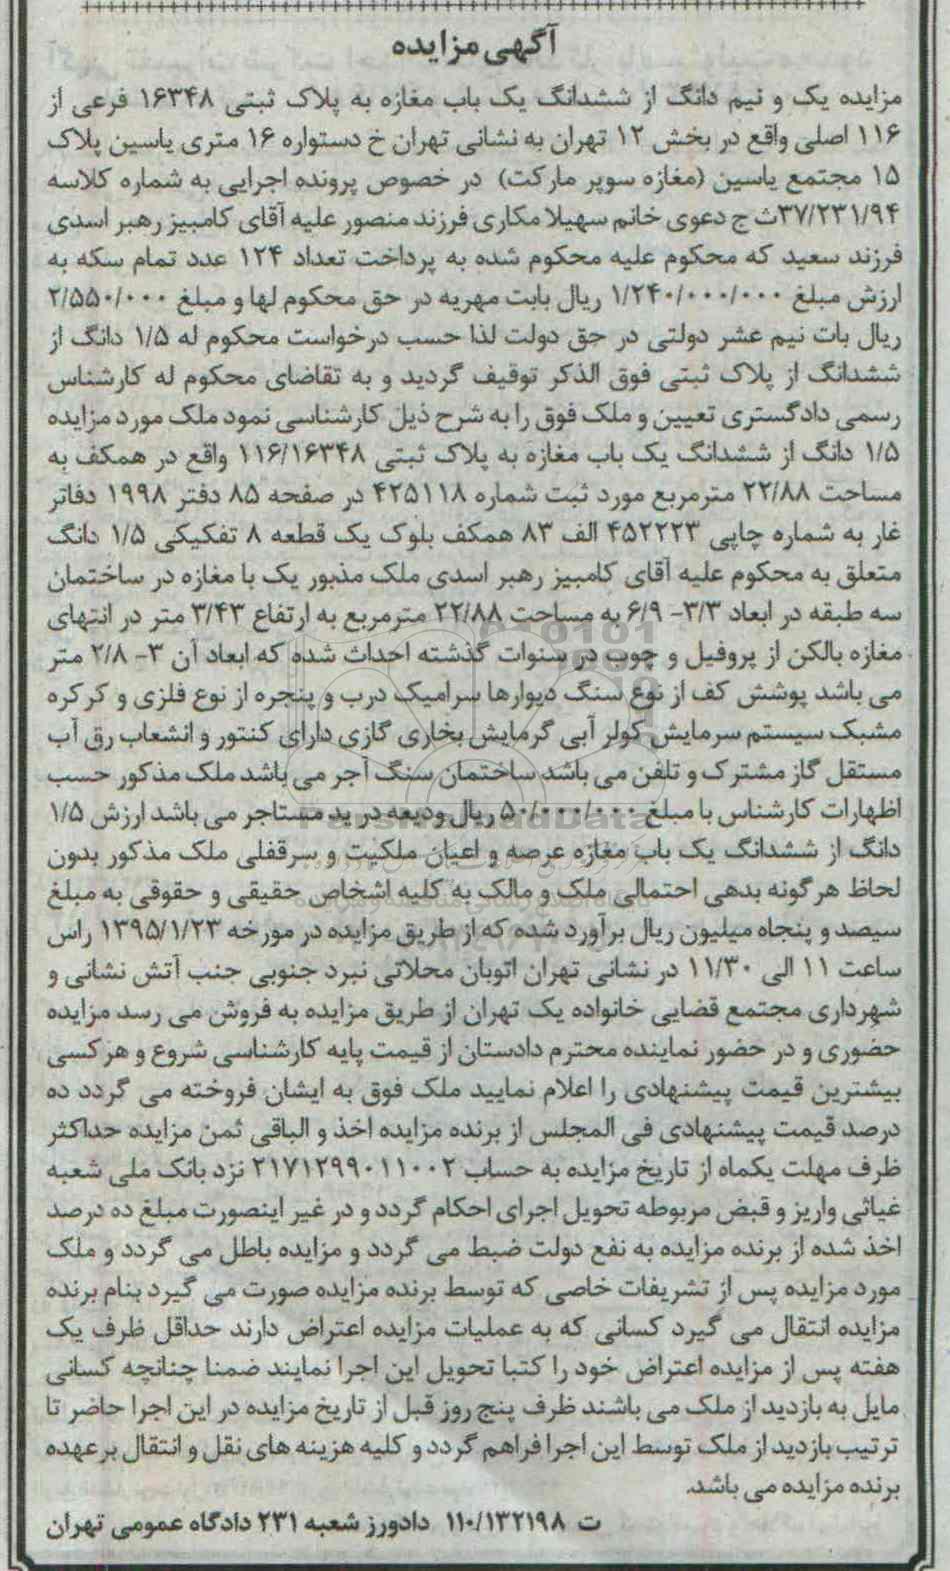 آگهی مزایده
مزایده یک و نیم دانگ از ششدانگ یک باب مغازه به پلاک ثبتی ۱۶۳۴۸ فرعی از
۱۱۶ اصلی واقع در بخش ۱۲ تهران به نشانی تهران خ دستواره ۱۶ متری یاسین پلاک
۱۵ مجتمع یاسین (مغازه سوپر مارکت) در خصوص پرونده اجرایی به شماره کلاسه
۳۷/۲۳۱/۹۴ث ج دعوی خانم سهیلا مکاری فرزند منصور علیه آقای کامبیز رهبر اسدی
فرزند سعید که محکوم علیه محکوم شده به پرداخت تعداد ۱۲۴ عدد تمام سکه به
ارزش مبلغ ۱/۲۴۰/۰۰۰/۰۰۰ ریال بابت مهریه در حق محکوم لها و مبلغ ۲/۵۵۰/۰۰۰
ریال بات نیم عشر دولتی در حق دولت لذا حسب درخواست محکوم له ۱/۵ دانگ از
ششدانگ از پلاک ثبتی فوق الذکر توقیف گردید و به تقاضای محکوم له کارشناس
رسمی دادگستری تعیین و ملک فوق را به شرح ذیل کارشناسی نمود ملک مورد مزایده
۱/۵ دانگ از ششدانگ یک باب مغازه به پلاک ثبتی ۱۱۶/۱۶۳۴۸ واقع در همکف به
مساحت ۲۲/۸۸ مترمربع مورد ثبت شماره ۴۲۵۱۱۸ در صفحه ۸۵ دفتر ۱۹۹۸ دفاتر
غار به شماره چاپی ۴۵۲۲۲۳ الف ۸۳ همکف بلوک یک قطعه ۸ تفکیکی ۱/۵ دانگ
متعلق به محکوم علیه آقای کامبیز رهبر اسدی ملک مذبور یک با مغازه در ساختمان
سه طبقه در ابعاد ۳/۳- ۶/۹ به مساحت ۲۲/۸۸ مترمربع به ارتفاع ۳/۴۳ متر در انتهای
مغازه بالکن از پروفیل و چوب در سنوات گذشته احداث شده که ابعاد آن ۳- ۲/۸ متر
می باشد پوشش کف از نوع سنگ دیوارها سرامیک درب و پنجره از نوع فلزی و کرکره
مشبک سیستم سرمایش کولر آبی گرمایش بخاری گازی دارای کنتور و انشعاب رق آب
مستقل گاز مشترک و تلفن می باشد ساختمان سنگ آجر می باشد ملک مذکور حسب
اظهارات کارشناس با مبلغ ۵۰/۰۰۰/۰۰۰ ریال ودیعه در ید مستاجر می باشد ارزش ۱/۵
دانگ از ششدانگ یک باب مغازه عرصه و اعیان ملکیت و سرقفلی ملک مذکور بدون
لحاظ هرگونه بدهی احتمالی ملک و مالک به کلیه اشخاص حقیقی و حقوقی به مبلغ
سیصد و پنجاه میلیون ریال برآورد شده که از طریق مزایده در مورخه ۱۳۹۵/۱/۲۳ راس
ساعت ۱۱ الی ۱۱/۳۰ در نشانی تهران اتوبان محلاتی نبرد جنوبی جنب آتش نشانی و
شهرداری مجتمع قضایی خانواده یک تهران از طریق مزایده به فروش می رسد مزایده
حضوری و در حضور نماینده محترم دادستان از قیمت پایه کارشناسی شروع و هرکسی
بیشترین قیمت پیشنهادی را اعلام نمایید ملک فوق به ایشان فروخته می گردد ده
درصد قیمت پیشنهادی فی المجلس از برنده مزایده اخذ و الباقی ثمن مزایده حداکثر
ظرف مهلت یکماه از تاریخ مزایده به حساب ۲۱۷۱۲۹۹۰۱۱۰۰۲ نزد بانک ملی شعبه
غیاثی واریز و قبض مربوطه تحویل اجرای احکام گردد و در غیر اینصورت مبلغ ده درصد
اخذ شده از برنده مزایده به نفع دولت ضبط می گردد و مزایده باطل می گردد و ملک
مورد مزایده پس از تشریفات خاصی که توسط برنده مزایده صورت می گیرد بنام برنده
مزایده انتقال می گیرد کسانی که به عملیات مزایده اعتراض دارند حداقل ظرف یک
هفته پس از مزایده اعتراض خود را کتبا تحویل این اجرا نمایند ضمنا چنانچه کسانی
مایل به بازدید از ملک می باشند ظرف پنج روز قبل از تاریخ مزایده در این اجرا حاضر تا
ترتیب بازدید از ملک توسط این اجرا فراهم گردد و کلیه هزینه های نقل و انتقال برعهده
برنده مزایده می باشد.
ت ۱۱۰/۱۳۲۱۹۸ دادورز شعبه ۲۳۱ دادگاه عمومی تهران